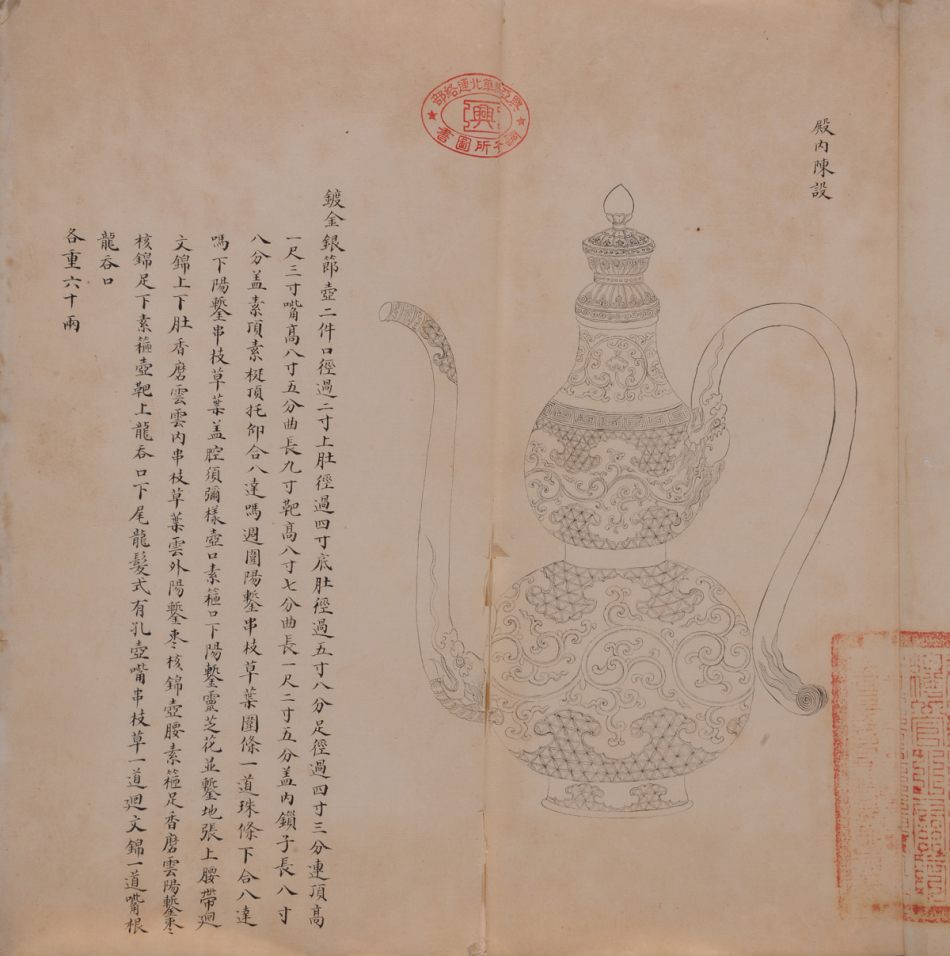 殿內陳設
鍍金銀節壺二件口徑過二寸上肚徑過四寸底肚徑過五寸八分足徑過四寸三分連頂高
一尺三寸嘴高八寸五分曲長九寸靶高八寸七分曲長一尺二寸五分盖內鎖子長八寸
八分盖素頂素梃頂托仰合八達嗎週圍陽鏨串枝草葉圍條一道珠條下合八達
嗎下陽鏨串枝草葉盖腔須彌樣壺口素箍口下陽鏨靈芝花並鏨地張上腰帶廻
文錦上下肚香磨雲雲內串枝草葉雲外陽鏨枣核錦壺腰素箍足香磨雲陽鏨枣
核錦足下素箍壺靶上龍吞口下尾龍髮式有孔壺嘴串枝草一道廻文錦一道嘴根
龍吞口
各重六十兩